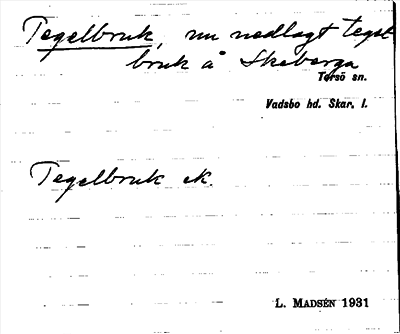 Tegelbruk, nu nedlagt tegel
bruk å Skeberga
Torsö sn.
Vadsbo hd. Skar. l.
Tegelbruk ek.
L. MADSÉN 1931